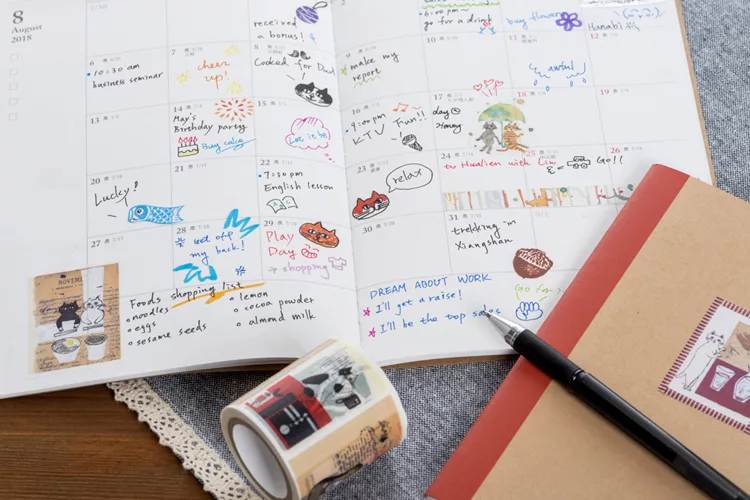 8
August
2018
received
a bonus!
6:00 pm
go for a drink
buy flower
Hanabi
6
10:30 am
business seminar
7
cheer
up!
8
Cooked for Dad
9
make my
report
10
11
awful
12
13
14
May's
Birthday party
Buy cake
15
Let it be
16
9:00 pm
KTV
Fun!!
17
day
Honey
18
19
20
Lucky!
21
22
7:30 pm
English lesson
23
relax
24
to Hualien with Lin
25
Go!!
26
27
28
Get off
my back!
29
Play
Day
→ shopping
30
31
trekking in
Xiangshan
Foods shopping list
• noodles
• eggs
• sesame seeds
• lemon
• cocoa powder
• almond milk
DREAM ABOUT WORK
I'll get a raise!
I'll be the top sales
Go for